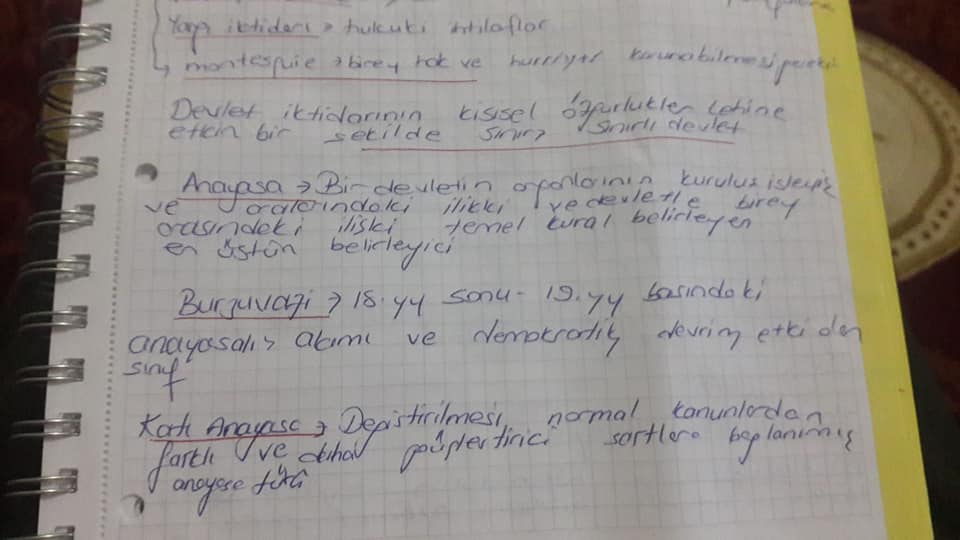 Yargı iktidarı → hukuki ihtilaflar
→ montesquie → birey hak ve hurriyti korunabilmesi
Devlet iktidarının kişisel özgürlükler lehine
etkin bir şekilde sınır → sınırlı devlet
Anayasa → Bir devletin organlarının kuruluş işleyiş
ve aralarındaki ilikki ve devletle birey
arasındaki ilişki temel kural belirleyen
en üstün belirleyici
Burjuvazi → 18.yy sonu - 19.yy başındaki
anayasalış akımı ve demokratik devrim etki den
sınıf
Katı Anayasa → Değiştirilmesi normal kanunlardan
farklı ve daha güçleştirici şartlara bağlanmış
anayasa türü